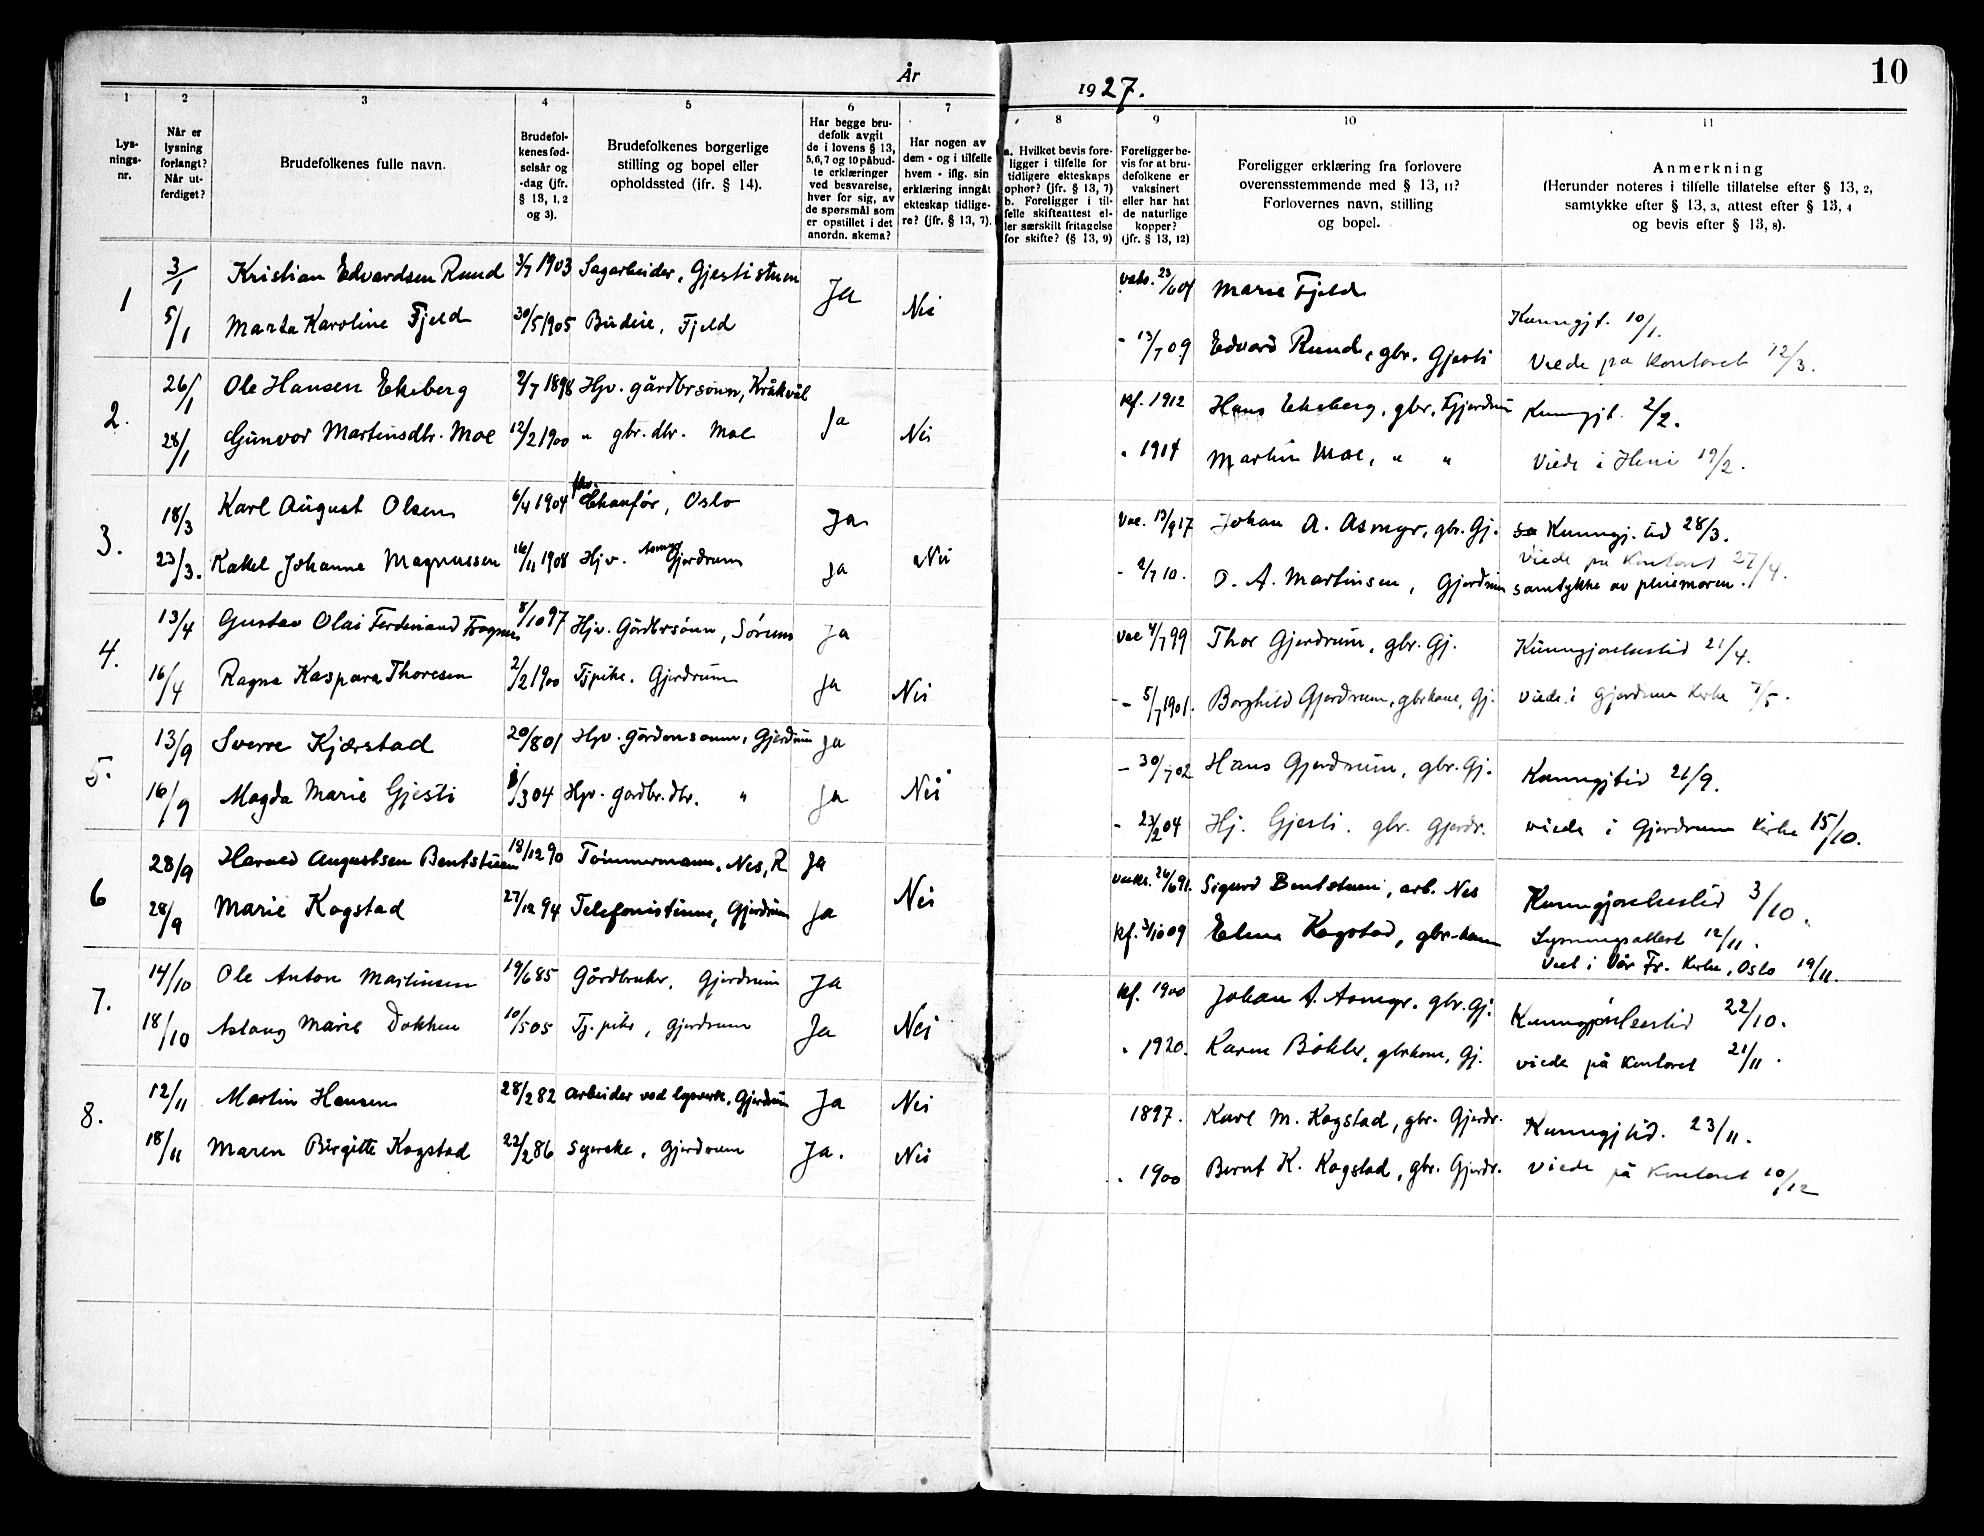 År
1927.
10
1
Lys-
nings-
nr.
2
Når er
lysning
forlangt?
Når ut-
ferdiget?
3
Brudefolkenes fulle navn.
4
Brudefol-
kenes fød-
selsår og
-dag (jfr.
§ 13, 1, 2
og 3).
5
Brudefolkenes borgerlige
stilling og bopel eller
opholdssted (jfr. § 14).
6
Har begge bru-
defolk avgit
de i lovens § 13,
5,6,7 og 10 påbud-
te erklæringer
ved besvarelse,
hver for sig, av
de spørsmål som
er opstillet i det
anordn. skema?
7
Har nogen av
dem - og i tilfelle
hvem - iflg. sin
erklæring inngåt
ekteskap tidlige-
re? (jfr. § 13, 7).
8
a. Hvilket bevis fore-
ligger i tilfelle for
tidligere ekteskaps
ophør? (jfr. § 13, 7)
b. Foreligger i til-
felle skifteattest el-
ler særskilt fritagelse
for skifte? (§ 13, 9)
9
Foreligger be-
vis for at bru-
defolkene er
vaksinert
eller har hat
de naturlige
kopper?
(jfr. § 13, 12)
10
Foreligger erklæring fra forlovere
overensstemmende med § 13, 11?
Forlovernes navn, stilling
og bopel.
11
Anmerkning
(Herunder noteres i tilfelle tillatelse efter § 13, 2,
samtykke efter § 13, 3, attest efter § 13, 4
og bevis efter § 13, 8).
1 3/1 Kristian Edvardsen Ruud 3/7 1903 Sagarbeider, Gjestistuen Ja Nei vaks. Marie Fjeld
5/1 Marta Karoline Fjeld 30/5 1905 Budeie, Fjeld - 13/7 09 Edvard Ruud, gbr. Gjesti Kunngjt. 10/1.
Viede på Kontoret 12/3.
2. 26/1 Ole Hansen Ekeberg 2/7 1898 Hjv. gårdbrsønn, Kråkvål Ja Nei kf. 1912 Hans Ekeberg, gbr, Gjerdrum Kunngjt. 2/2.
28/1 Gunvor Martinsdtr. Moe 12/2 1900 " gbr. dtr. Moe " 1914 Martin Moe, " " Viede i Heni 19/2.
3. 18/3 Karl August Olsen 6/4 1904 Chaufør, Oslo Ja Nei Vac. 13/9 17 Johan A. Asmyr, gbr. Gj. Kunngj. tid 28/3.
Viede på Kontoret 27/4.
23/3. Rakel Johanne Magnussen 16/11 1908 Hjv. Asmyr Gjerdrum Ja - 2/7 10. O. A. Martinsen, Gjerdrum samtykke av pleiemoren.
4. 13/4 Gustav Olai Ferdinand 8/10 97 Hjv. Gårdbrsønn, Sørum Ja Nei vac 4/7 99 Thor Gjerdrum, gbr. Gj. Kunngjørelsestid 21/4.
16/4 Ragna Kaspara Thoresen 2/2 1900 Tjpike. Gjerdrum Ja - 5/7 1901. Borghild Gjerdrum, gbrkone, Gj. Viede i Gjerdrum Kirke 7/5.
5. 13/9 Sverre Kjærstad 20/8 01 Hjv. gårdmsønn, Gjerdrum Ja Nei - 30/7 02 Hans Gjerdrum, gbr. Gj. Kunngjtid 21/9.
16/9 Magda Marie Gjesti /3 04 Hjv. gardbr. dtr. " Ja - 23/2 04 Hj. Gjesti. gbr. Gjerdr. viede i Gjerdrum Kirke 15/10.
6 28/9 Harald Augustsen Bentstuen 18/12 90 Tømmermann, Nes, R Ja Nei vaks. 24/6 91. Sigurd Bentstuen, arb. Nes Kunngjørelsestid 3/10.
28/9 Marie Kogstad 27/12 94 Telefonistinne, Gjerdrum Ja kf. 3/10 09 Elina Kogstad, gbr-kone Lysningsattest 12/11.
Viet i Vår Fr. Kirke, Oslo 19/11.
7. 14/10 Ole Anton Martinsen 19/6 85 Gårdbruker, Gjerdrum Ja Nei kf. 1900 Johan A. Asmyr. gbr. Gj. Kunngjørelsestid 22/10.
18/10 Aslaug Marie Dokken 10/5 05 Tj. pike, Gjerdrum Ja " 1920. Karen Bøhler, gbrkone, Gj. viede på Kontoret 21/11.
8. 12/11 Martin Hansen 28/2 82 Arbeider ved lysverk, Gjerdrum Ja Nei 1897. Karl M. Kogstad, gbr. Gjerdr. Kunngjtid. 23/11.
18/11 Maren Birgitte Kogstad 22/2 86 Syerske, Gjerdrum Ja. Nei " 1900 Bernt K. Kogstad, gbr. Gjerdr. Viede på Kontoret 10/12